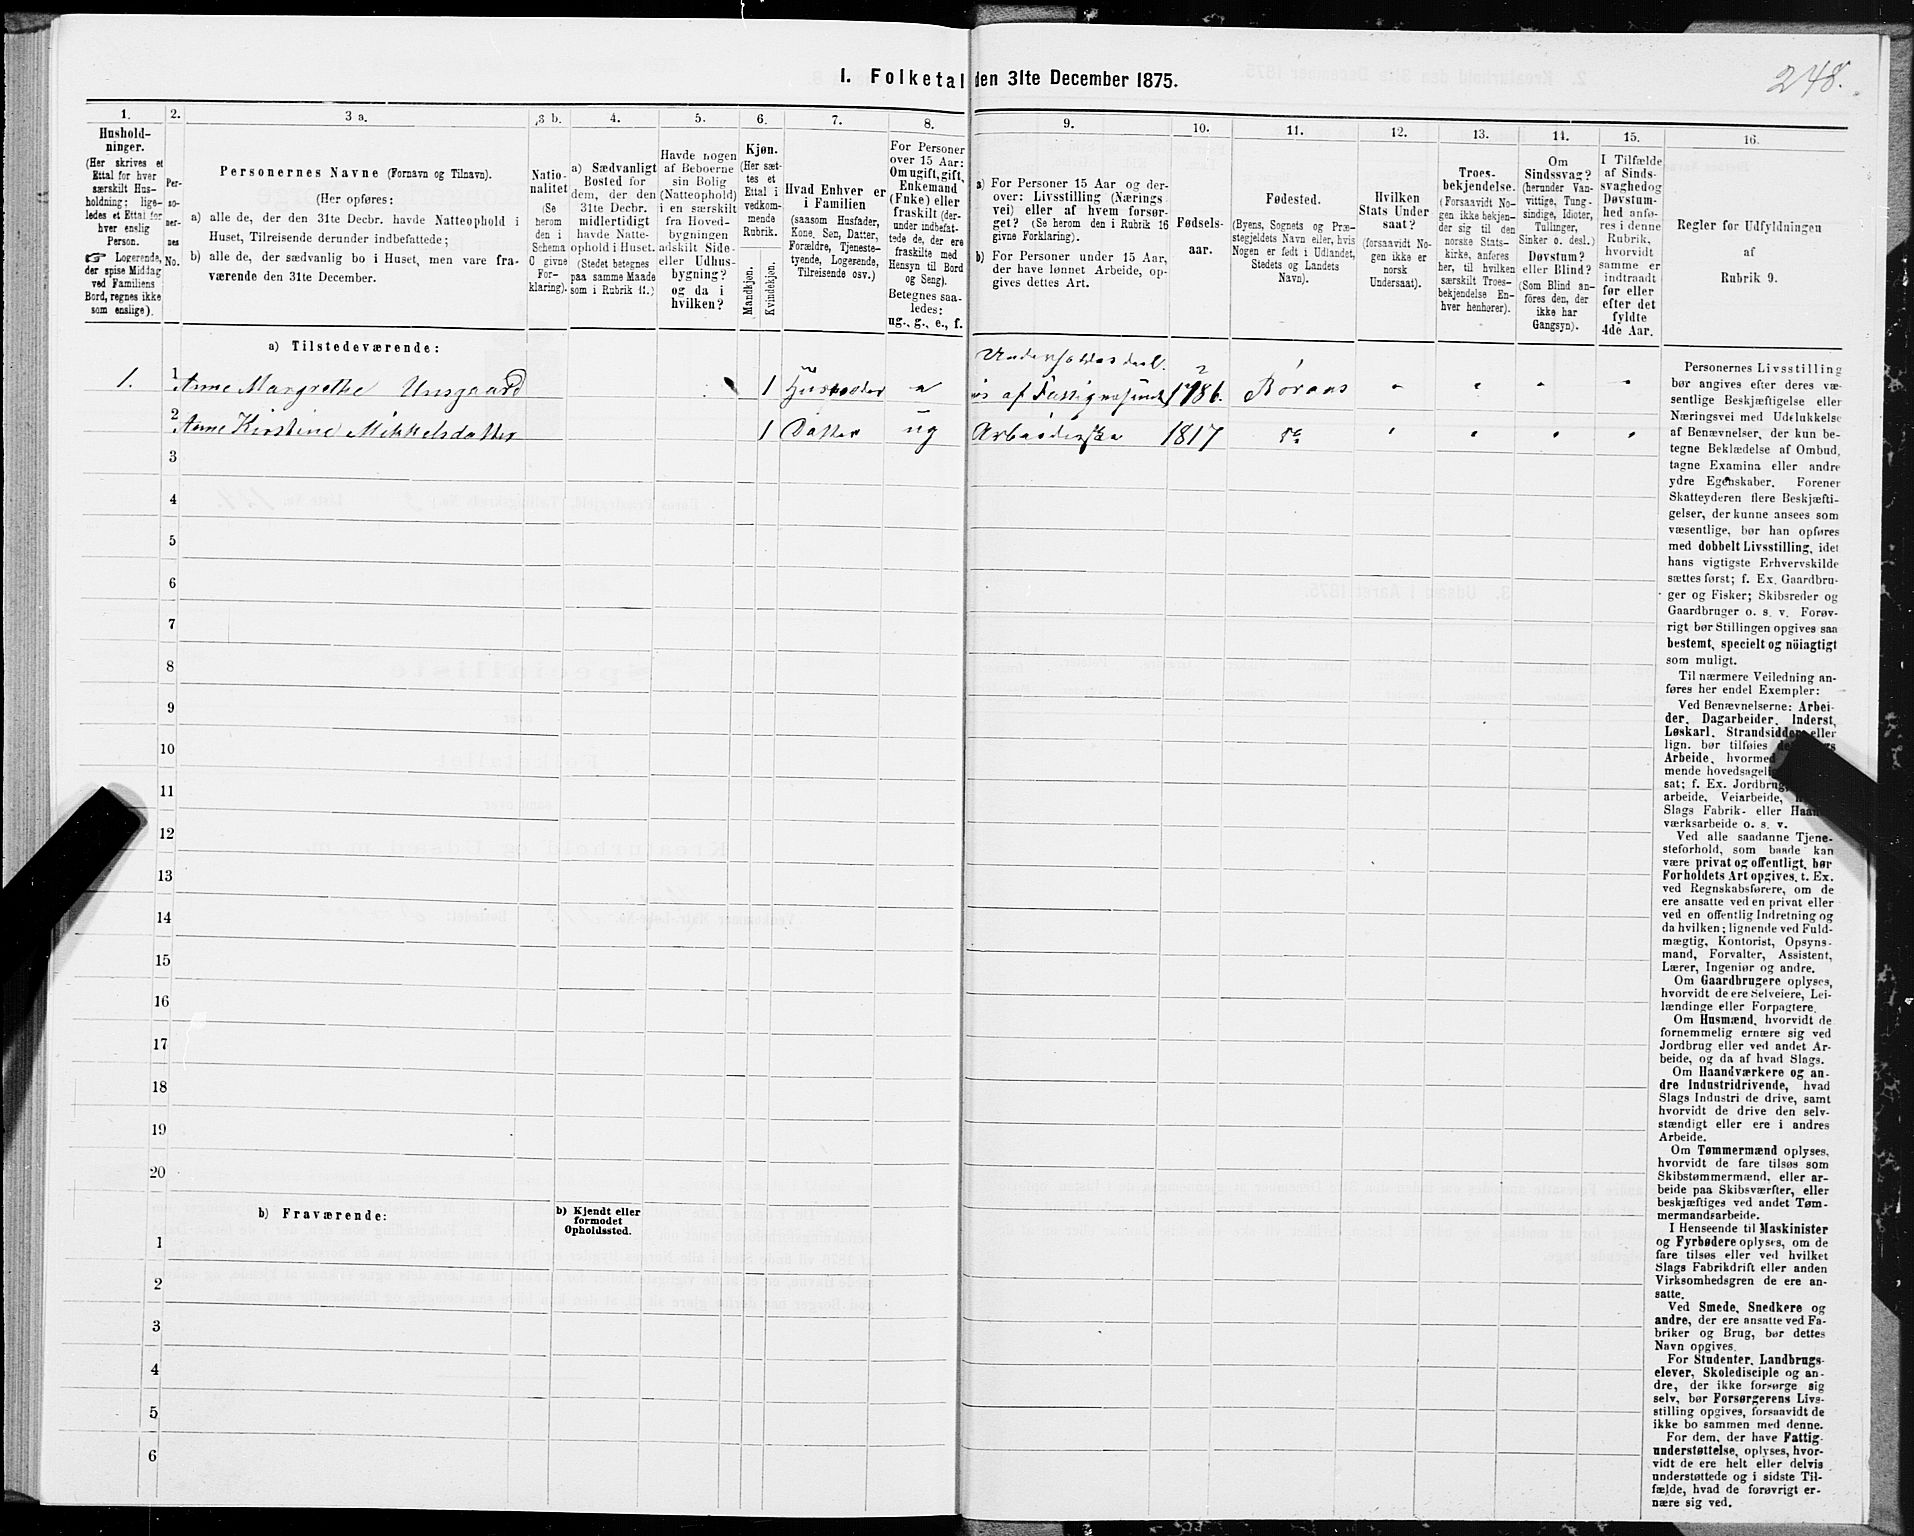 I. Folketal den 31te December 1875.
248.
1.
Hushold-
ninger.
(Her skrives et
Ettal for hver
særskilt Hus-
holdning; lige-
ledes et Ettal for
hver enslig
Person.
☞ Logerende,
der spise Middag
ved Familiens
Bord, regnes ikke
som enslige).
2.
Per-
so-
ner-
nes
No.
3 a.
Personernes Navne (Fornavn og Tilnavn).
(Her opføres:
a) alle de, der den 31te Decbr. havde Natteophold i
Huset, Tilreisende derunder indbefattede;
b) alle de, der sædvanlig bo i Huset, men vare fra-
værende den 31te December.
3 b.
Natio-
nalitet
(Se
herom
den i
Schema
C givne
For-
klaring).
4.
a) Sædvanligt
Bosted for
dem, der den
31te Decbr.
midlertidigt
havde Natte-
ophold i Huset.
(Stedet betegnes
paa samme Maade
som i Rubrik 11.)
5.
Havde nogen
af Beboerne
sin Bolig
(Natteophold)
i en særskilt
fra Hoved-
bygningen
adskilt Side-
eller Udhus-
bygning?
og da i
hvilken?
6.
Kjøn.
(Her sæt-
tes et
Ettal i
vedkom-
mende
Rubrik.
Mandkjøn.
Kvindekjøn.
7.
Hvad Enhver er
i Familien
(saasom Husfader,
Kone, Søn, Datter,
Forældre, Tjeneste-
tyende, Logerende,
Tilreisende osv.)
8.
For Personer
over 15 Aar:
Om ugift, gift,
Enkemand
(Enke) eller
fraskilt (der-
under indbefat-
tede de, der ere
fraskilte med
Hensyn til Bord
og Seng).
Betegnes saa-
ledes:
ug., g., e., f.
9.
a) For Personer 15 Aar og der-
over: Livsstilling (Nærings
vei) eller af hvem forsør-
get? (Se herom den i Rubrik 16
givne Forklaring).
b) For Personer under 15 Aar,
der have lønnet Arbeide, op-
gives dettes Art.
10.
Fødsels-
aar.
11.
Fødested.
(Byens, Sognets og Præ-
stegjeldets Navn eller, hvis
Nogen er født i Udlandet,
Stedets og Landets
Navn).
12.
Hvilken
Stats Under
saat?
(forsaavidt No-
gen ikke er
norsk
Undersaat).
13.
Troes-
bekjendelse.
(Forsaavidt No-
gen ikke bekjen-
der sig til den
norske Stats-
kirke, anføres
her, til hvilken
særskilt Troes-
bekjendelse En-
hver henhører).
14.
Om
Sindssvag?
(herunder Van-
vittige, Tung-
sindige, Idioter,
Tullinger,
Sinker o. desl.)
Døvstum?
eller Blind?
(Som Blind an-
føres den, der
ikke har
Gangsyn).
15.
I Tilfælde
af Sinds-
svaghed og
Døvstum-
hed anfø-
res i denne
Rubrik,
hvorvidt
samme er
indtraadt
før eller
efter det
fyldte
4de Aar.
16.
Regler for Udfyldningen
af
Rubrik 9.
a) Tilstedeværende:
1. 1 Anne Margrethe 1 1786. "
2 Anne Kirstine Mikkelsdatter 1 Datter ug 1817
3
4
5
6
7
8
9
10
11
12
13
14
15
16
17
18
19
20
b) Fraværende:
b) Kjendt eller
formodet
Opholdssted.
1
2
3
4
5
6
Personernes Livsstilling
bør angives efter deres væ-
sentlige Beskjæftigelse eller
Næringsvei med Udelukkelse
af Benævnelser, der kun be-
tegne Beklædelse af Ombud,
tagne Examina eller andre
ydre Egenskaber. Forener
Skatteyderen flere Beskjæfti-
gelser, der kunne ansees som
væsentlige, bør han opføres
med dobbelt Livsstilling, idet
hans vigtigste Erhvervskilde
sættes først; f. Ex. Gaardbru-
ger og Fisker; Skibsreder og
Gaardbruger o. s. v. Forøv-
rigt bør Stillingen opgives saa
bestemt, specielt og nöiagtigt
som muligt.
Til nærmere Veiledning an-
føres her endel Exempler:
Ved Benævnelserne: Arbei-
der, Dagarbeider, Inderst,
Løskarl, Strandsidder eller
lign. bør tilføies
Arbeide, hvormed
mende hovedsagelig
sat; f. Ex. Jordbrug,
arbeide, Veiarbeide,
Slags Fabrik- eller Haand-
værksarbeide o. s. v.
Ved alle saadanne Tjene-
steforhold, som baade kan
være privat og offentligt, bør
Forholdets Art opgives, t. Ex.
ved Regnskabsførere, om de
ere ansatte ved en privat eller
ved en offentlig Indretning og
da hvilken; lignende ved Fuld-
mægtig, Kontorist, Opsyns-
mand, Forvalter, Assistent,
Lærer, Ingeniør og andre.
Om Gaardbrugere oplyses,
hvorvidt de ere Selveiere, Lei-
lændinge eller Forpagtere.
Om Husmænd, hvorvidt de
fornemmelig ernære sig ved
Jordbrug eller ved andet Ar-
beide, og da af hvad Slags.
Om Haandværkere og an-
dre Industridrivende, hvad
Slags Industri de drive, samt
hvorvidt de drive den selv-
stændigt eller ere i andres
Arbeide.
Om Tømmermænd oplyses,
hvorvidt de fare tilsøs som
Skibstømmermænd, eller ar-
beide paa Skibsværfter, eller
beskjæftiges ved andet Tøm-
mermandsarbeide.
I Henseende til Maskinister
og Fyrbødere oplyses, om de
fare tilsøs eller ved hvilket
Slags Fabrikdrift eller anden
Virksomhedsgren de ere an-
satte.
Ved Smede, Snedkere og
andre, der ere ansatte ved Fa-
briker og Brug, bør dettes
Navn opgives.
For Studenter, Landbrugs-
elever, Skoledisciple og an-
dre, der ikke forsørge sig
selv, bør Forsørgerens Livs-
stilling opgives, forsaavidt de
ikke bo sammen med denne.
For dem, der have Fattig-
understøttelse, oplyses, hvor-
vidt de ere helt eller delvis
understøttede og i sidste Til-
fælde, hvad de forøvrigt er-
nære sig ved.